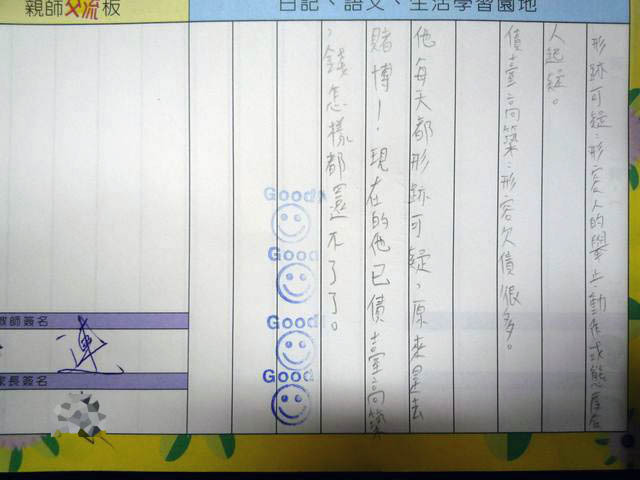 親師交流板
日記、語文、生活學習園地
形跡可疑：形容人的舉止動作或態度令
人起疑。
債臺高築：形容欠債很多。
他每天都形跡可疑，原來是去
賭博！現在的他已債臺高築
，錢怎樣都還不了了。
Good!
Good!
Good!
Good!
教師簽名
家長簽名